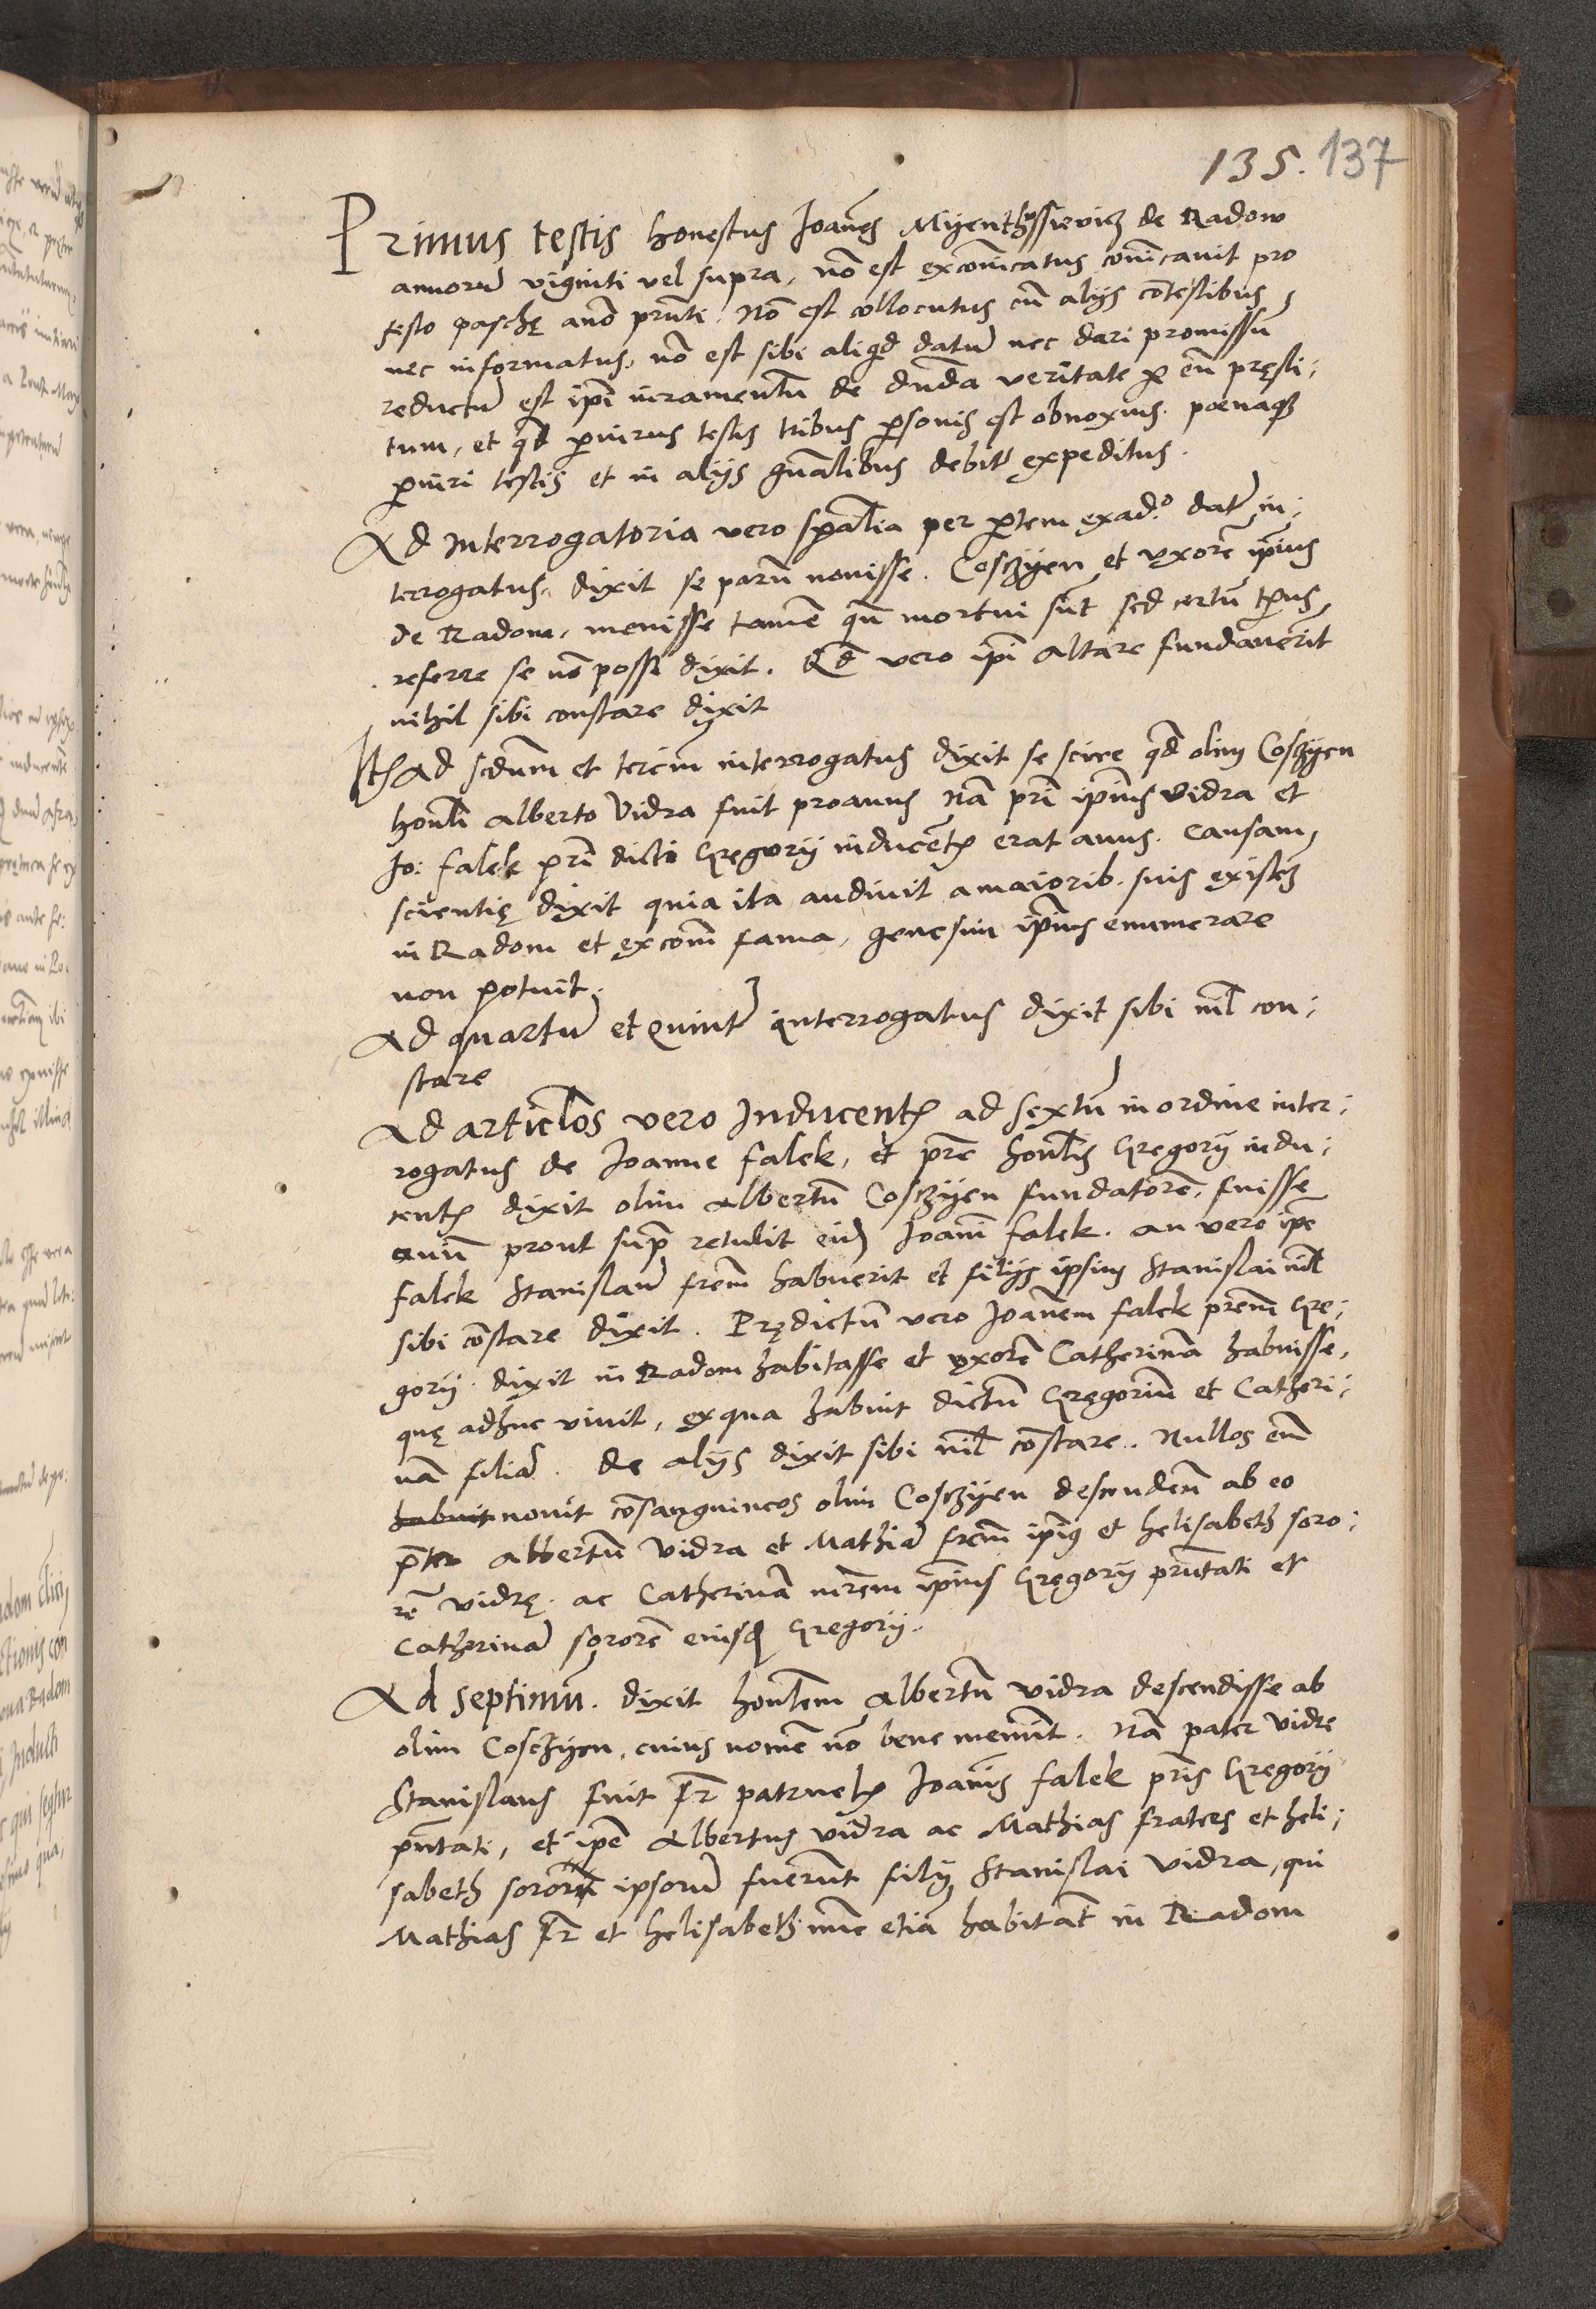 135. 137
Primus testis honestus Joan̄es Myenthussievicz de Radom
annorū viginti vel supra, nō est excōmcatus cōmcavit pro
festo paschę anō prn̄ti. Nō est collocutus cū alijs cōtestibus
nec informatus, nō est sibi aliqd datū nec dari promissū
reductū est ipī iuramentū de dn̄da veritate p eū pręsti;
tum, et qd piurus testis tribus psonis est obnoxius. pœnaq3
piuri testis et in alijs gn̄alibus debit expeditus.
Ad Interrogatoria vero sp̄alia per ptem exad.º dat in;
terrogatus, dixit se parū novisse. Cosczyen et vxorē ip̄ius
de Radom, menisse tamē qn̄ mortui sūt sed certū tp̄us
referre se nō posse dixit. Qd vero ip̄i altare fundaverit
nihil sibi constare dixit
Itē Ad scdum et terciū interrogatus dixit se scire qd olim Cosczyen
honl̄i Alberto Vidra fuit proavus Nā prī ip̄ius Vidra et
Jo: falek prī dicti Gregorij inducētis erat avus. Causam
scientię dixit quia ita audivit a maiorib. suis existēs
in Radom et ex com̄ fama, genesim ip̄ius enumerare
non potuit.
Ad quartū et Quintū interrogatus dixit sibi nil con;
stare
Ad articlos vero Inducentis ad sextū in ordine inter;
rogatus de Joanne falek, et prē honl̄is Gregorij indu;
centis dixit olim Albertū Cosczyen fundatorē, fuisse
avū prout supr̄ retulit eid Joan̄i falek. an vero ip̄e
falek Stanislaū frem̄ habuerit et filijs ipsius Stanislai nil
sibi cōstare dixit. Prędictū vero Joan̄em falek prem̄ Gre;
gorij dixit in Radom habitasse et vxorē Catherinā habuisse,
quę adhuc vivit, ex qua habuit dictū Gregoriū et Catheri;
nā filiā. de alijs dixit sibi nil cōstare. Nullos em̄
habuit novit cōsanguineos olim Cosczyen descendeñ ab eo
prēter Albertū Vidra et Mathiā frem̄ ip̄ius et helisabeth soro;
rē vidrę. ac Catherinā mrem ip̄ius Gregorij prn̄tati et
Catherinā sororē eiusd Gregorij.
Ad septimū. dixit honl̄em Albertū vidra descendisse ab
olim Cosczyen, cuius nomē nō bene meminit. Nā pater Vidrę
Stanislaus fuit fr̄ patruelis Joan̄is falek pris Gregorij
prn̄tati, et ip̄e Albertus vidra ac Mathias fratres et heli;
sabeth soror ipsorū fuerunt filij Stanislai Vidra, qui
Mathias fr̄ et helisabeth nūc etiā habitāt in Radom